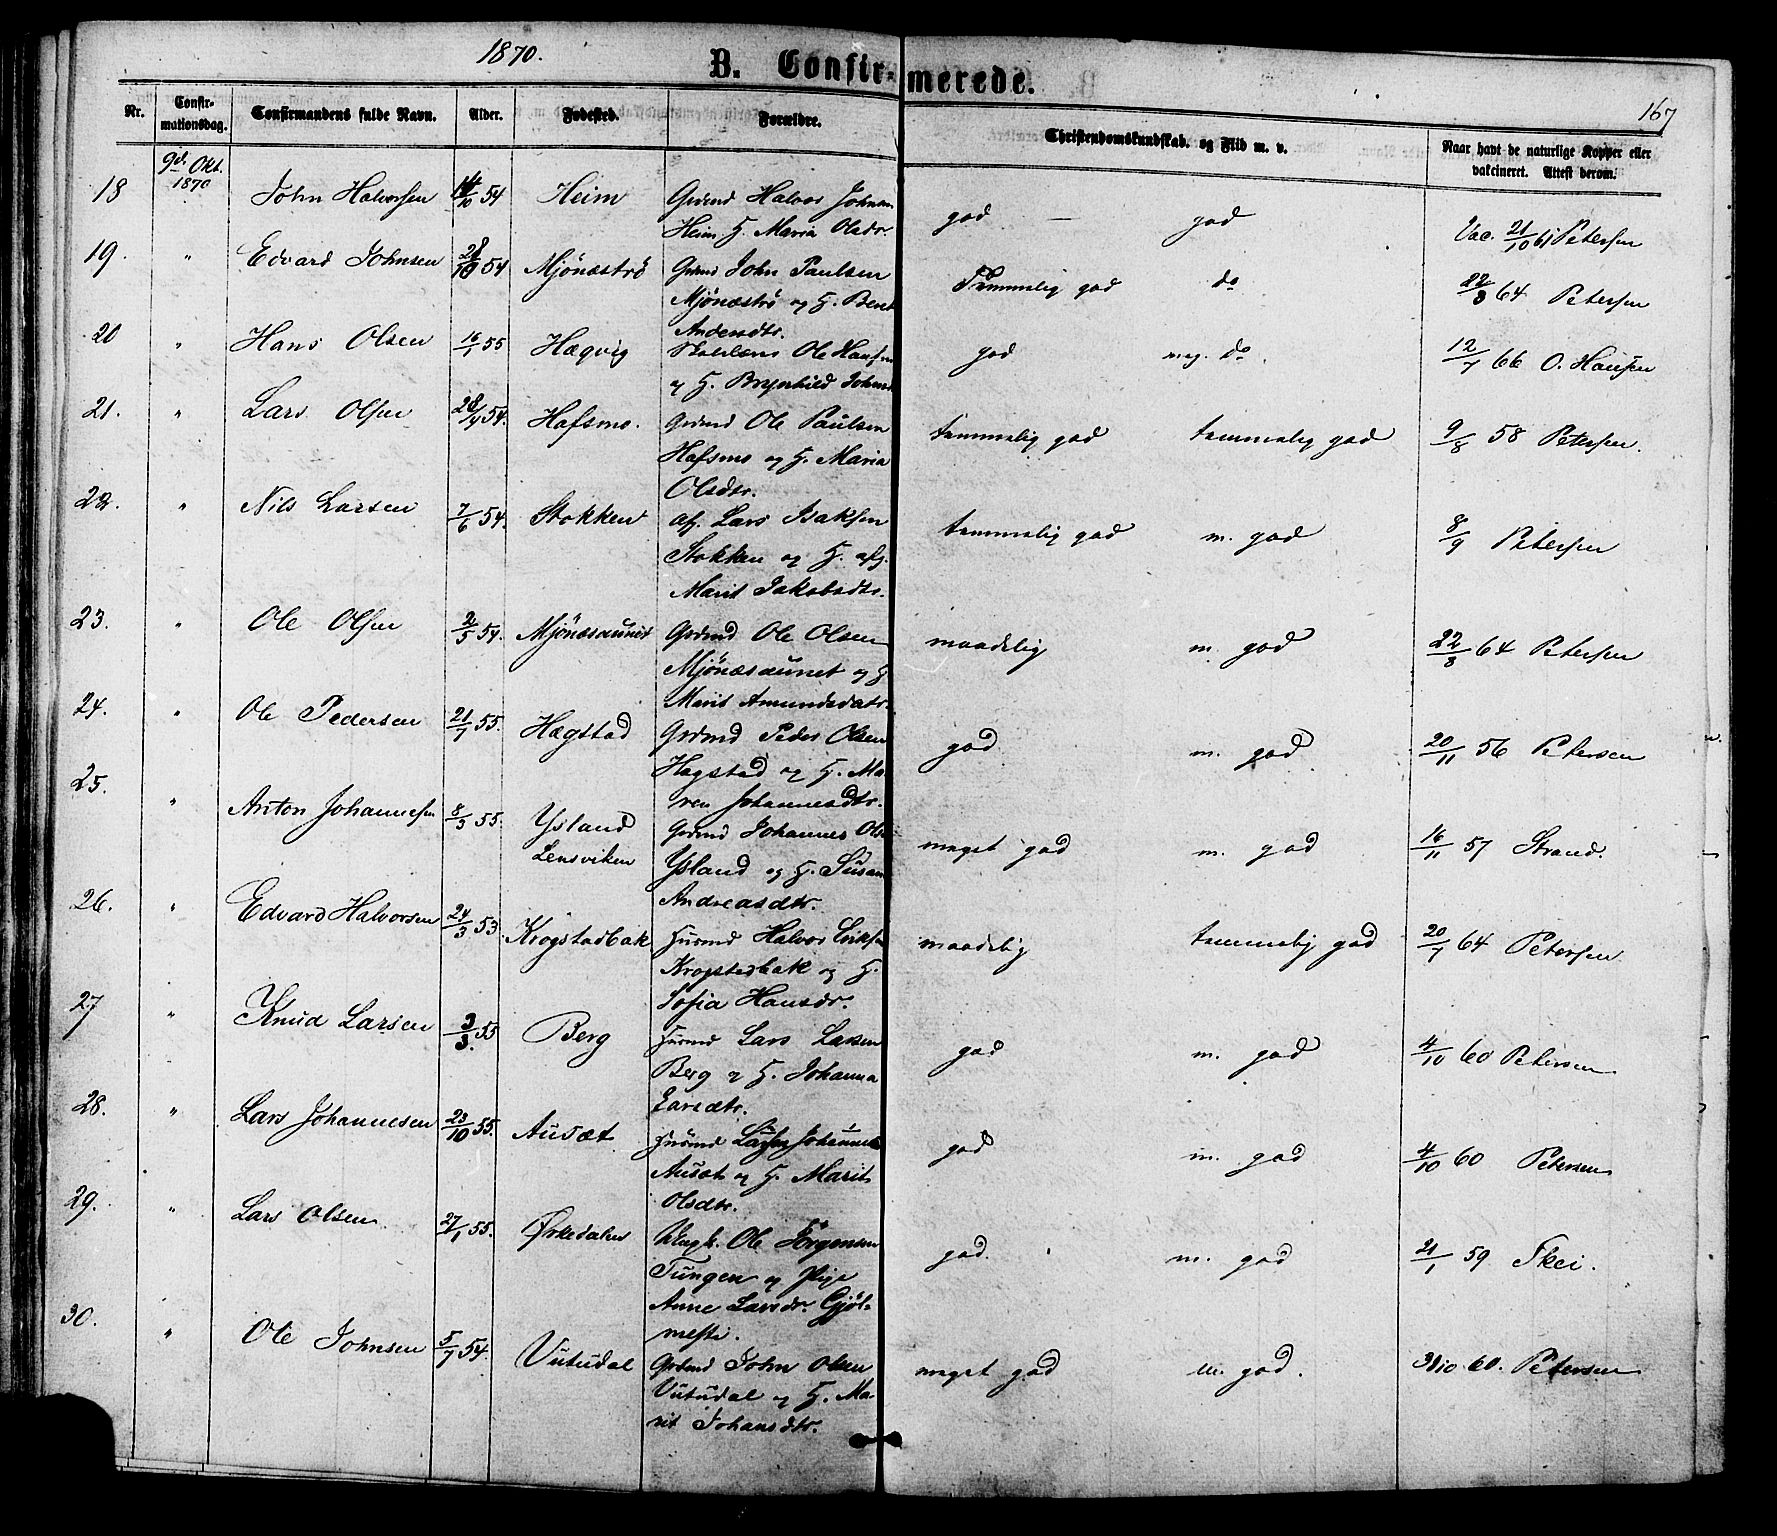 1870.
B. Confirmerede.
167
Nr. Confirmationsdag. Confirmandens fulde Navn. Alder. Fødested. Forældre. Christendomskundskab. og Flid m. v. Naar havt de naturlige Kopper eller vakcineret. Attest derom.
18 9d. Okt. 1870 John Halvorsen 54 Heim Grdmd Halvor Johnsen god – god Vac. 21/10 61 Petersen
Heim. H. Maria Olsdr.
19. " Edvard Johnsen 54 Mjönæströ Grdmd John Paulsen Temmelig god do 22/8 64 Petersen
Mjönæströ og H. Beret
Andersdtr.
20 " Hans Olsen 16/1 55 Hægvig Skolelærer Ole Hansen god meg. do. 12/7 66 O. Hansen
og H. Brynhild Johnsd
21. " Lars Olsen 28/4 54. Hafsmo. Grdmd Ole Paulsen temmelig god temmelig god 9/8 58 Petersen.
Hafsmo og H. Maria
Olsdtr.
22. " Nils Larsen 7/6 54. Stokken af. Lars Isaksen temmelig god m. god 8/9 Petersen
Stokken og H. afg.
Marit Jakobsdtr.
23. " Ole Olsen 2/5 54. Mjönæsaunet Grdmd Ole Olsen maadelig m. god 22/8 64 Petersen
Mjönæsaunet og H
Marit Amundsdatr.
24. " Ole Pedersen 21/7 55. Hægstad Grdmd Peder Olsen god m. god 20/11 56 Petersen
Hægstad og H. Ma-
ren Johannesdtr.
25. " Anton Johannesen 8/3 55. Ysland Lensviken Grdmd Johannes Ols meget god m. god 16/11 57 Strand.
Ysland og H. Susan
Andreasdtr.
26. " Edvard Halvorsen 24/3 53 Krogstadbak Husmd Halvor Eriksen maadelig temmelig god 20/7 64 Petersen
Krogstadbak og H.
Sofia Hansdr.
27 " Knud Larsen 3/3. 55 Berg Husmd Lars Larsen god m. god 4/10 60 Petersen
Berg og H. Johanna
Larsdtr.
28. " Lars Johannesen 23/10 55. Ausæt Husmd Johannes god m. god 4/10 60 Petersen
Ausæt og H. Marit
Olsdtr.
29. " Lars Olsen 27/1 55. Ørkedalen Ungk. Ole Jörgensen god. m. god 21/1 59 Skei.
Tungen og Pige
Anne Larsdr. Gjöl-
mesli.
30. " Ole Johnsen 5/7 54. Vutudal Grdmd John Olsen meget god m. god. 60. Petersen
Vutudal og H. Ma-
rit Johansdtr.